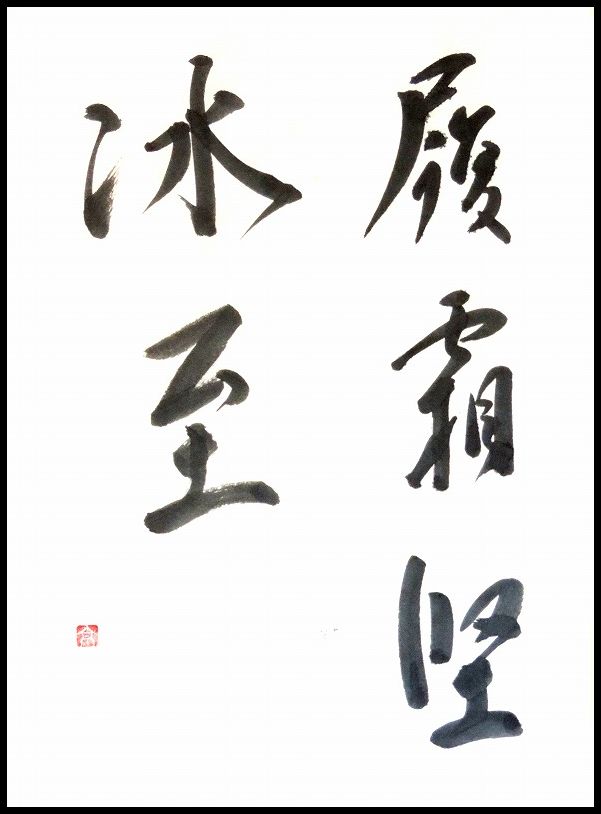 履霜坚
冰至